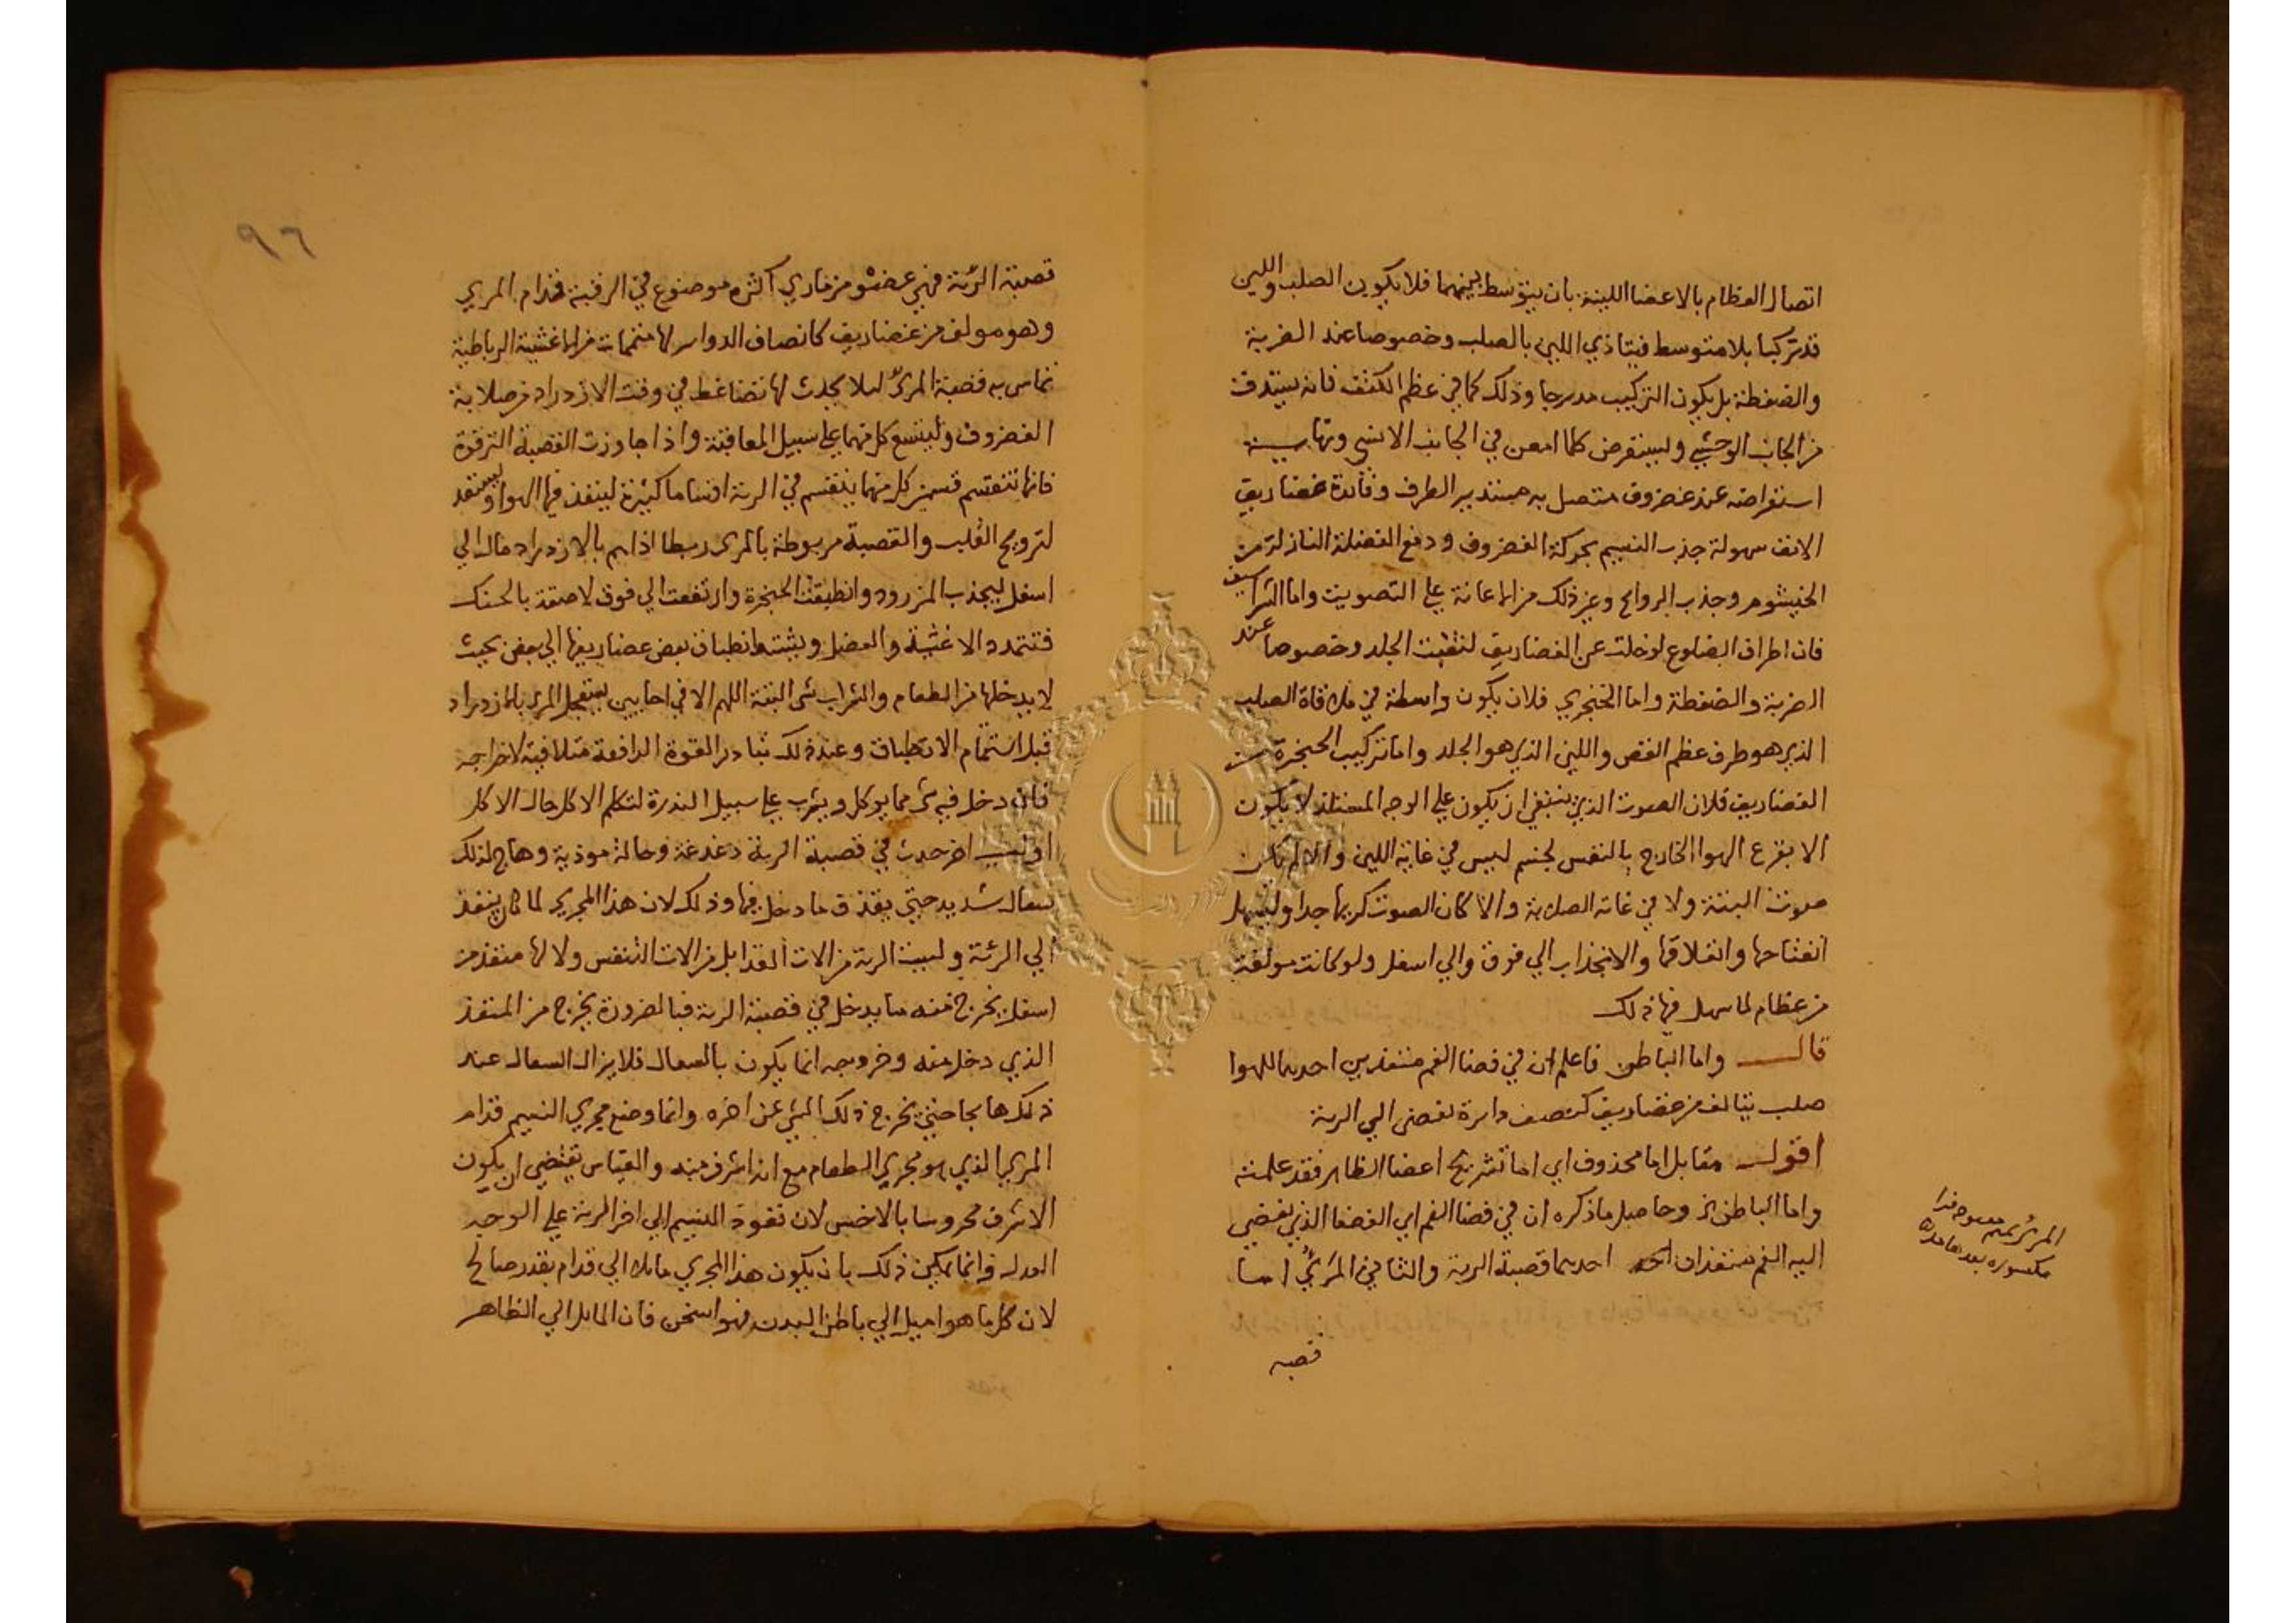 اتصال العظام بالاعضا اللينة بان يتوسط بينهما فلا يكون الصلب واللين
قد تركبا بلا متوسط فيتاذي اللين بالصلب وخصوصا عند الضربة
والضغطة بل يكون التركيب مدرجا وذلك كما في عظم الكتف فانه يستدق
من الجانب الوحشي ويستعرض كلما امعن في الجانب الانسي ونهاية
استعراضه عند غضروف متصل به مستدير الطرف وفائدة غضاريف
الانف سهولة جذب النسيم بحركة الغضروف ودفع الفضلة النازلة من
الخيشوم وجذب الروائح وغير ذلك من الاعانة علي التصويت واما الشراسيف
فان اطراف الضلوع لو خلت عن الغضاريف لنقبت الجلد وخصوصا عند
الضربة والضغطة واما الخنجري فلان يكون واسطة في ملاقاة الصلب
الذي هو طرف عظم القص واللين الذي هو الجلد واما تركيب الحنجرة من
الغضاريف فلان الصوت الذي ينبغي ان يكون علي الوجه لا يكون
الا بقرع الهوا الخارج بالنفس لجسم ليس في غاية اللين والا لم يكن
صوت البتة ولا في غاية الصلابة والا كان الصوت كريها جدا وليسهل
انفتاحها وانغلاقها والانجذاب الي فوق والي اسفل ولو كانت مولفة
من عظام لما سهل فيها ذلك
قال واما الباطن فاعلم ان في فضا الفم منفذين احدهما للهوا
صلب يتالف من غضاريف كنصف دايرة تفضي الي الرية
اقول مقابل اما محذوف اي اما تشريح اعضا الظاهر فقد علمته
واما الباطن الخ وحاصل ما ذكره ان في فضا الفم اي الفضا الذي يفضي
اليه الفم منفذان احدهما قصبة الرية والثاني المرئ اما
قصبه
المرئ بميم مفتوحة فراء
مكسورة بعدها مدة
٩٦
قصبة الرئة فهي عضو غضاريفي اكثره موضوع في الرقبة قدام المري
وهو مولف من غضاريف كانصاف الدوائر لها متممات من الاغشية الرباطية
تماس به قصبة المرئ ليلا يحدث لها تضاغط في وقت الازدراد من صلابة
الغضروف وليتسع كل منهما علي سبيل المعاقبة واذا جاوزت القصبة الترقوة
فانها تنقسم قسمين كل منهما ينقسم في الرية اقساما كثيرة لينفذ فيها الهوا
لترويح القلب والقصبة مربوطة بالمرى ربطا اذا هم بالازدراد مال الي
اسفل ليجذب المزرود وانطبقت الحنجرة وارتفعت الي فوق لاصقة بالحنك
فتتمدد الاغشية والعضل ويشتد انطباق بعض غضاريفها الي بعض بحيث
لا يدخلها من الطعام والشراب شى البتة اللهم الا في احايين يستعجل المرء بالازدراد
قبل استتمام الانطباق وعند ذلك تبادر القوة الدافعة متلافية لاخراجه
فان دخل فيه شى مما يوكل ويشرب علي سبيل الندرة لتكلم الاكل حال الاكل
او لسبب اخر حدث في قصبة الرية دغدغة وحالة موذية وهاج لذلك
سعال شديد حتي يقذف ما دخل فيها وذلك لان هذا المجري لما كان ينفذ
الي الرئة وليست الرية من الات الغذا بل من الات التنفس ولا لها منفذ من
اسفل يخرج منه ما يدخل في قصبة الرية فبالضرورة يخرج من المنفذ
الذي دخل منه وخروجه انما يكون بالسعال فلا يزال السعال عند
ذلك هايجا حتي يخرج ذلك الشي عن اخره وانما وضع مجري النسيم قدام
المري الذي هو مجري الطعام مع انه اشرف منه والقياس يقتضي ان يكون
الاشرف محروسا بالاخس لان نفوذ النسيم الي اخر الرية علي الوجه
العدل وانما يمكن ذلك بان يكون هذا المجري مايلا الي قدام بقدر صالح
لان كل ما هو اميل الي باطن البدن فهو اسخن فان المايل الي الظاهر